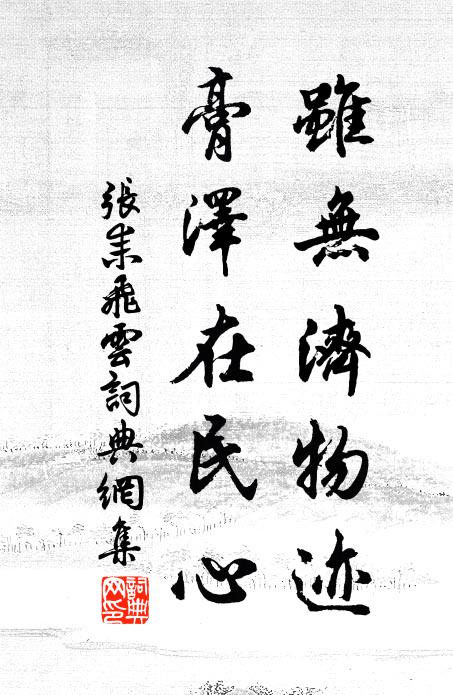 雖無濟物迹
膏澤在民心
張耒飛雲詞典網集
詞典网印